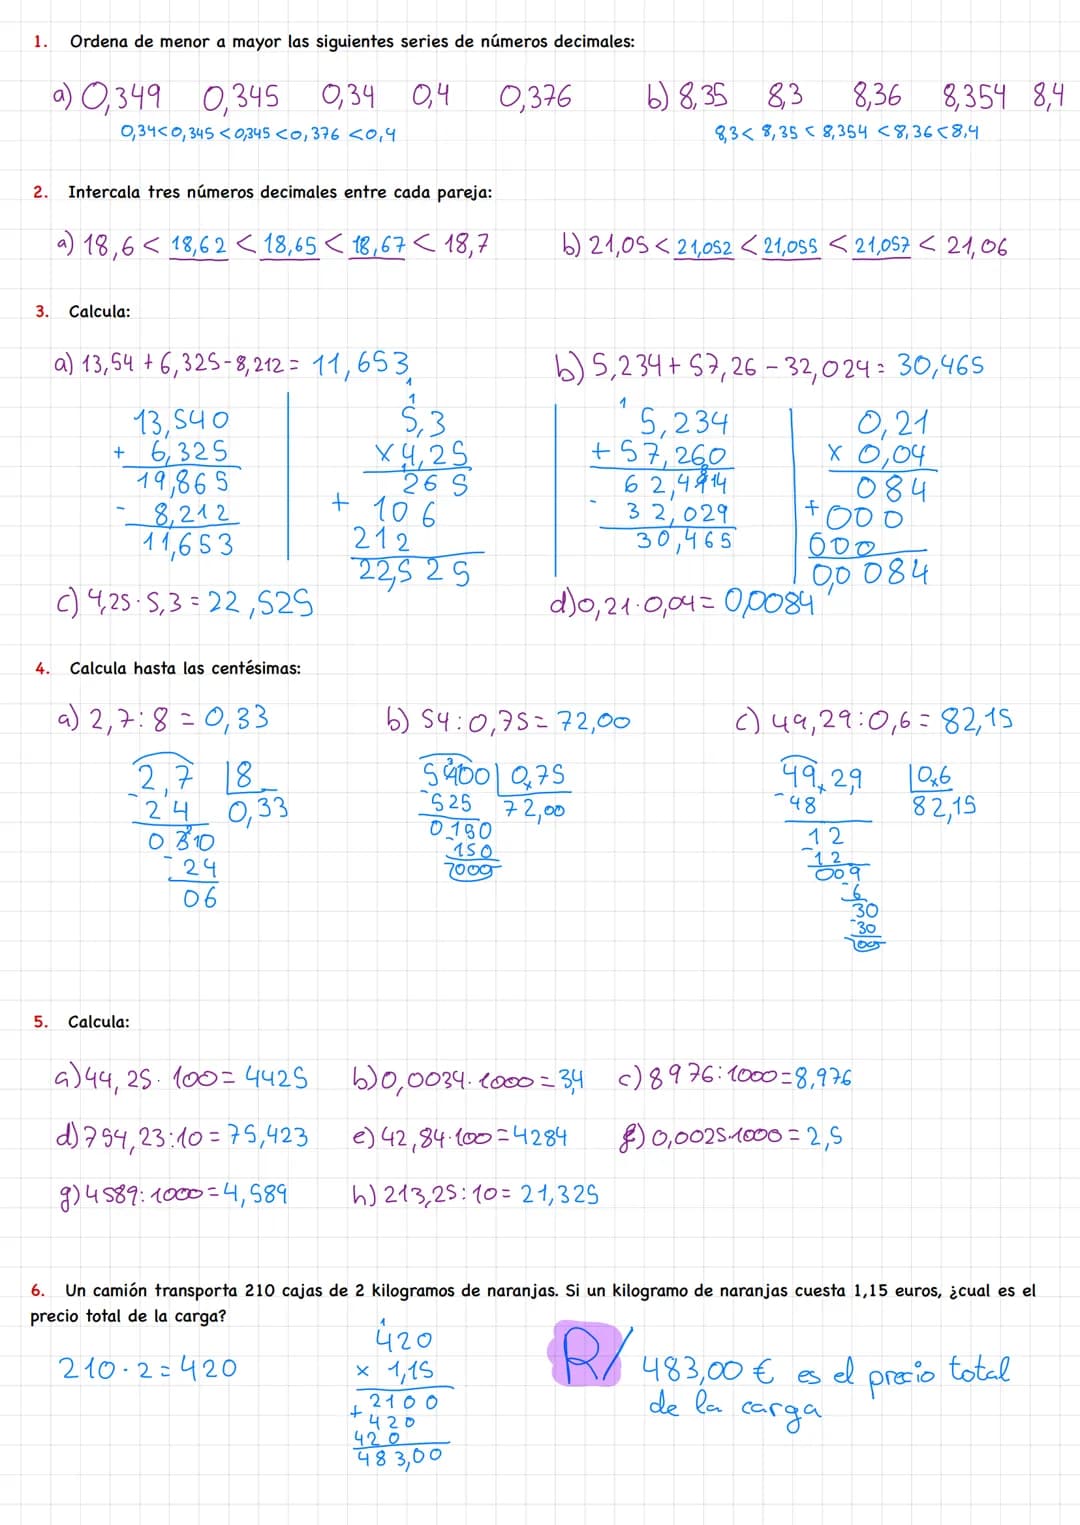 1. Ordena de menor a mayor las siguientes series de números decimales:
a) 0,349 0,345 0,34 0,4 0,376 b) 8,35 8,3 8,36 8,354 8,4
0,34<0,345<0,345<0,376<0,4 8,3<8,35<8,354<8,36<8,4
2. Intercala tres números decimales entre cada pareja:
a) 18,6 < 18,62 < 18,65 < 18,67 < 18,7 b) 21,05 < 21,052 < 21,055 < 21,057 < 21,06
3. Calcula:
a) 13,54 + 6,325 - 8,212 = 11,653 b) 5,234 + 57,26 - 32,024 = 30,465
13,540
+ 6,325
19,865
- 8,212
11,653
1
1
5,3
x 4,25
265
+ 106
212
22,525
1
5,234
+ 57,260
62,494
- 32,029
30,465
0,21
x 0,04
084
+ 000
000
0,0084
c) 4,25 · 5,3 = 22,525 d) 0,21 · 0,04 = 0,0084
4. Calcula hasta las centésimas:
a) 2,7 : 8 = 0,33 b) 54 : 0,75 = 72,00 c) 49,29 : 0,6 = 82,15
2,7 8
- 24 0,33
0 310
- 24
06
5400 0,75
- 525 72,00
0 150
- 150
000
49,29 0,6
- 48 82,15
12
- 12
009
- 6
30
- 30
00
5. Calcula:
a) 44,25 · 100 = 4425 b) 0,0034 · 1000 = 3,4 c) 8976 : 1000 = 8,976
d) 754,23 : 10 = 75,423 e) 42,84 · 100 = 4284 f) 0,0025 · 1000 = 2,5
g) 4589 : 1000 = 4,589 h) 213,25 : 10 = 21,325
6. Un camión transporta 210 cajas de 2 kilogramos de naranjas. Si un kilogramo de naranjas cuesta 1,15 euros, ¿cual es el
precio total de la carga?
210 · 2 = 420
1
420
x 1,15
2100
+ 420
420
483,00
R/ 483,00 € es el precio total
de la carga